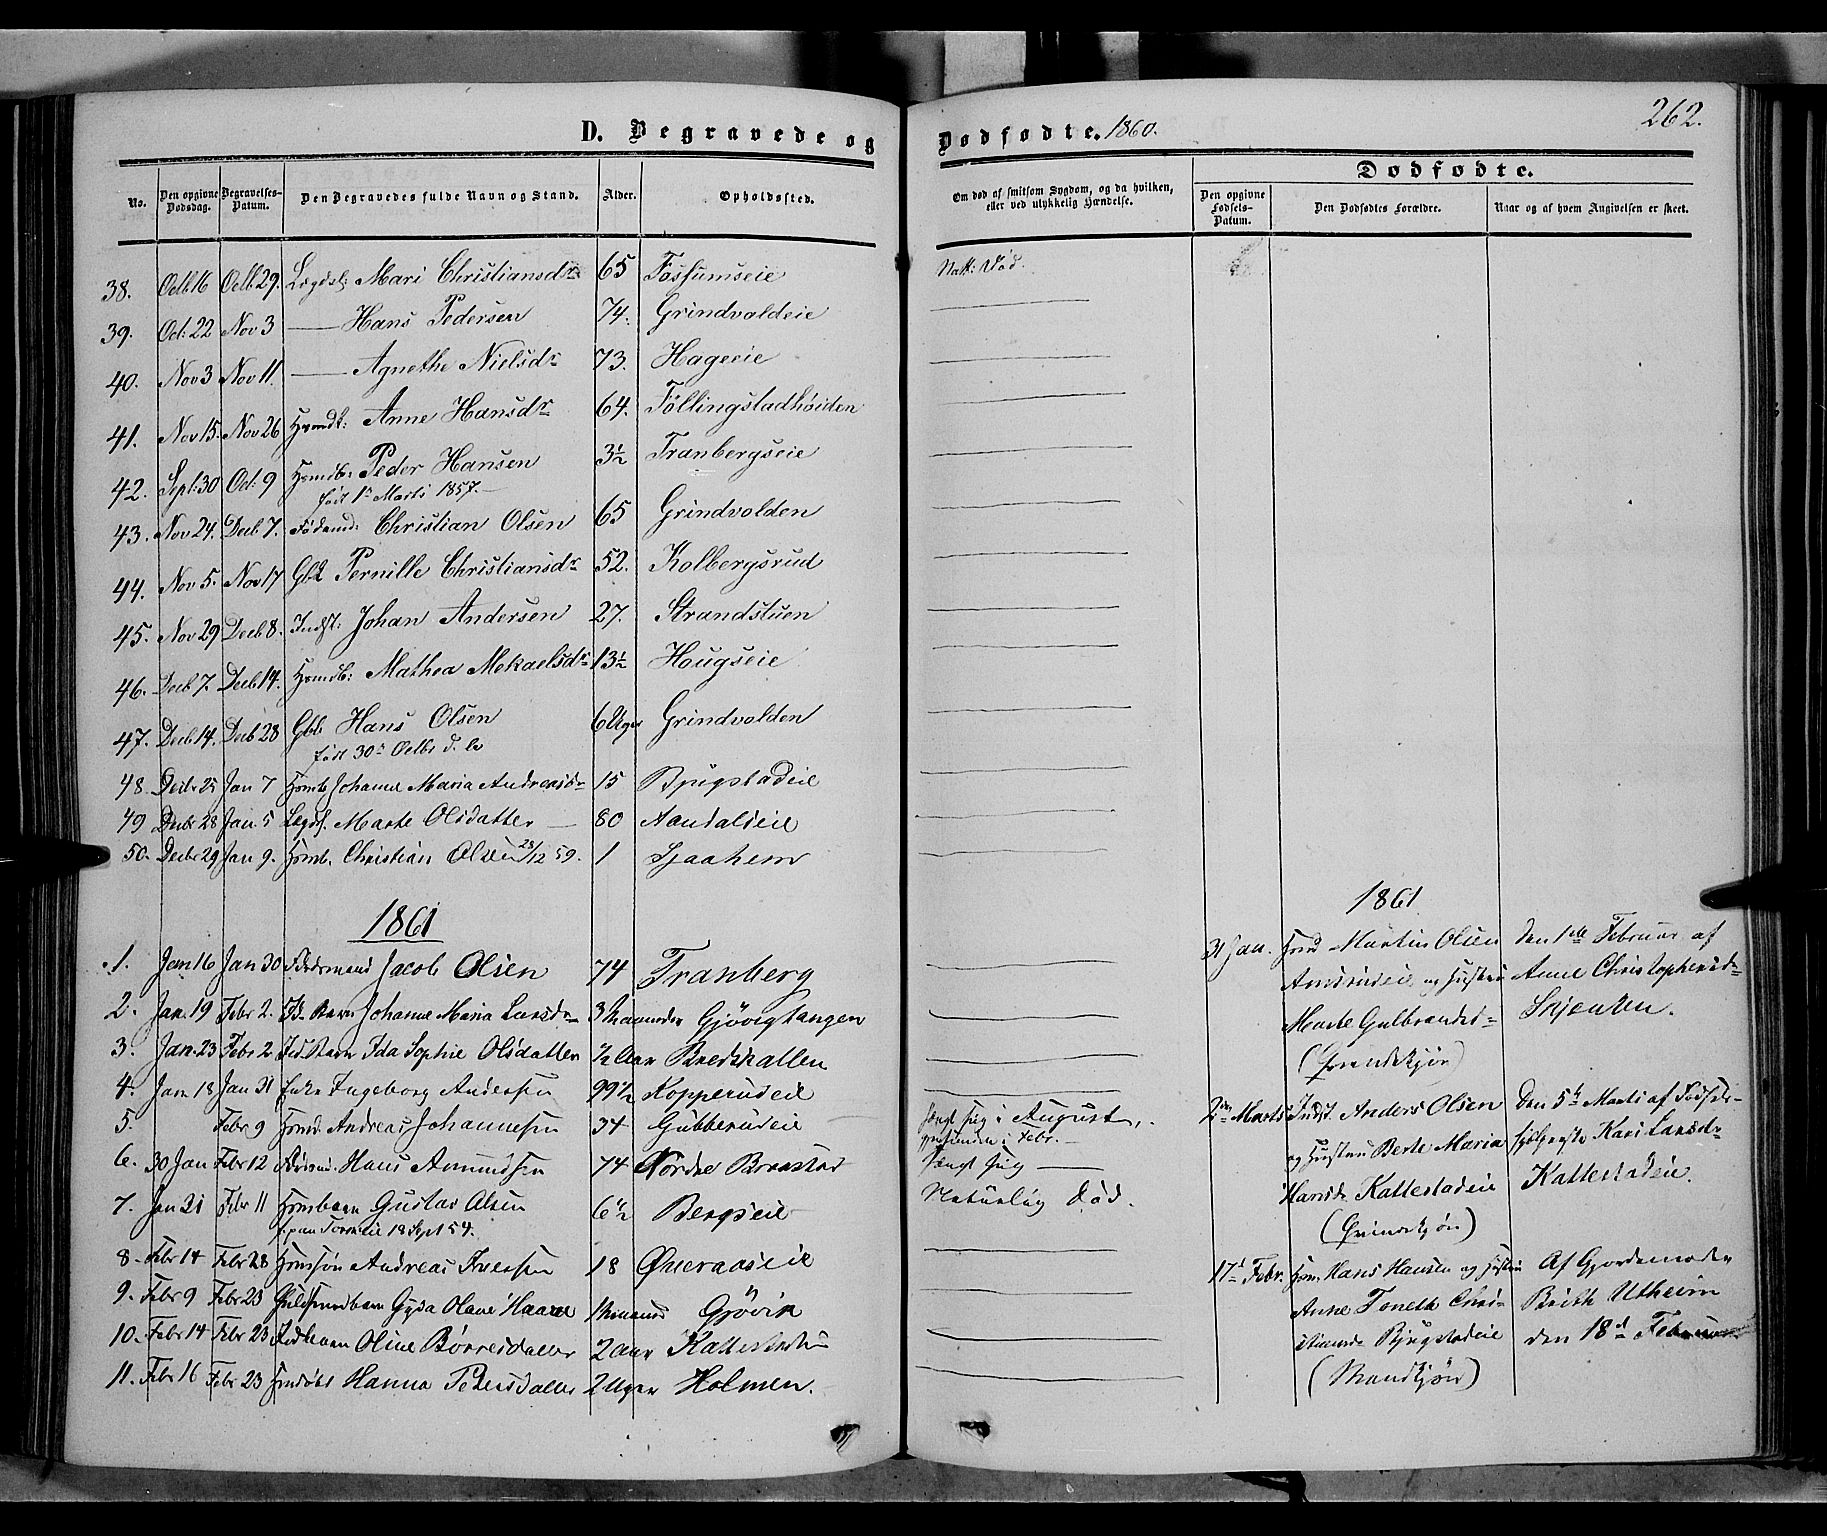 262.
D. Begravede og Dødfødte. 1860.
No. Den opgivne Dødsdag. Begravelses-Datum. Den Begravedes fulde Navn og Stand. Alder. Opholdssted. Om død af smitsom Sygdom, og da hvilken, eller ved ulykkelig Hændelse.
Dødfødte.
Den opgivne Fødsels-Datum. Den Dødfødtes Forældre. Naar og af hvem Angivelsen er skeet.
38. Octb 16 Octb 29. Lægdsl: Mari Christiansdr 65 Fossumseie Natl: Død.
39. Oct: 22 Nov 3 — Hans Pedersen 74. Grindvoldeie
40. Nov 3 Nov 11. — Agnethe Nielsdr 73. Hageeie
41. Nov 15. Nov 26 Hsmdk: Anne Hansdr 64. Töllingstadhöiden
42. Sept: 30 Oct: 9 Hsmdb: Peder Hansen 3½ Tranbergseie
född 1ste Marts 1857.
43. Nov 24. Decb 7. Föderaad: Christian Olsen 65 Grindvolden
44. Nov 5. Nov 17 Gbk Pernille Christiansdr 52. Kolbergsrud
45. Nov 29 Decb 8. Indst: Johan Andersen 27. Strandstuen
46. Decb 7. Decb 14. Hsmdb: Mathea Mekaelsdr 13½ Hougseie
47. Decb 14. Decb 28 Gbb Hans Olsen 6 Uger Grindvolden
født 30te Octbr
48. Decbr 25 Jan 7 Hsmb Johanne Maria Andreasdr 15 Bjugstadeie
49 Decbr 28 Jan. 5 Lægdsl. Marte Olsdatter — 80 Aandalseie
50. Decbr 29 Jan 9. Hsmb. Christian Olsen 23/12 59. 1 Sjaahem
1861
1. Jan 16 Jan 30 Föderaadsmand Jacob Olsen 74 Tranberg
2. Jan. 19 Febr 2. Barn Johanne Maria Larsdr 3 Maaneder Gjövigtangen
3. Jan. 23 Febr 2 Barn Ida Sophie Olsdatter ½ Aar Bredskallen
4. Jan 18 Jan 31 Enke Ingeborg Andersen 99½ Kopperudeie
5. Febr 9 Hsmd. Andreas Johannesen 34 Gubberudeie i August,
i Febr.
6. 30 Jan Febr 12 Hans Amundsen 74 Nordre Braastad
7. Jan 21 Febr 11 Husmbarn Gustav Olsen 6½ Bergseie Naturlig Död.
18 Sept 54.
8 Febr 14 Febr 28 Husmsøn Andreas Iversen 18 Øveraaseie
9. Febr 9 Febr 23 Gyda Olave Haave Gjövik
10. Febr 14 Febr 23 Oline Börresdatter 2 aar Kattestadeie
11. Febr 16 Febr 23 Hanna Pedersdatter 2 Uger Holmen.
1861
31 Jan. Hsmd Martin Olsen
og Hustru
Marte Gulbrandsd
(Qvindekjön)
den 1ste Februar af
Anne Christophersdr
2den Marts Indst. Anders Olsen
og Hustru Berte Maria
Hansdr Kattestadeie
(Qvindekjön)
Den 5te Marts af
Kari Larsdr
Kattestadeie.
17d Febr. Hsm. Hans Hansen og Hustru
Anne Toneth Chri-
stiansdr Bjugstadeie
(Mandkjön)
Af Gjordemoder
Brith Utheim
den 18d Februar